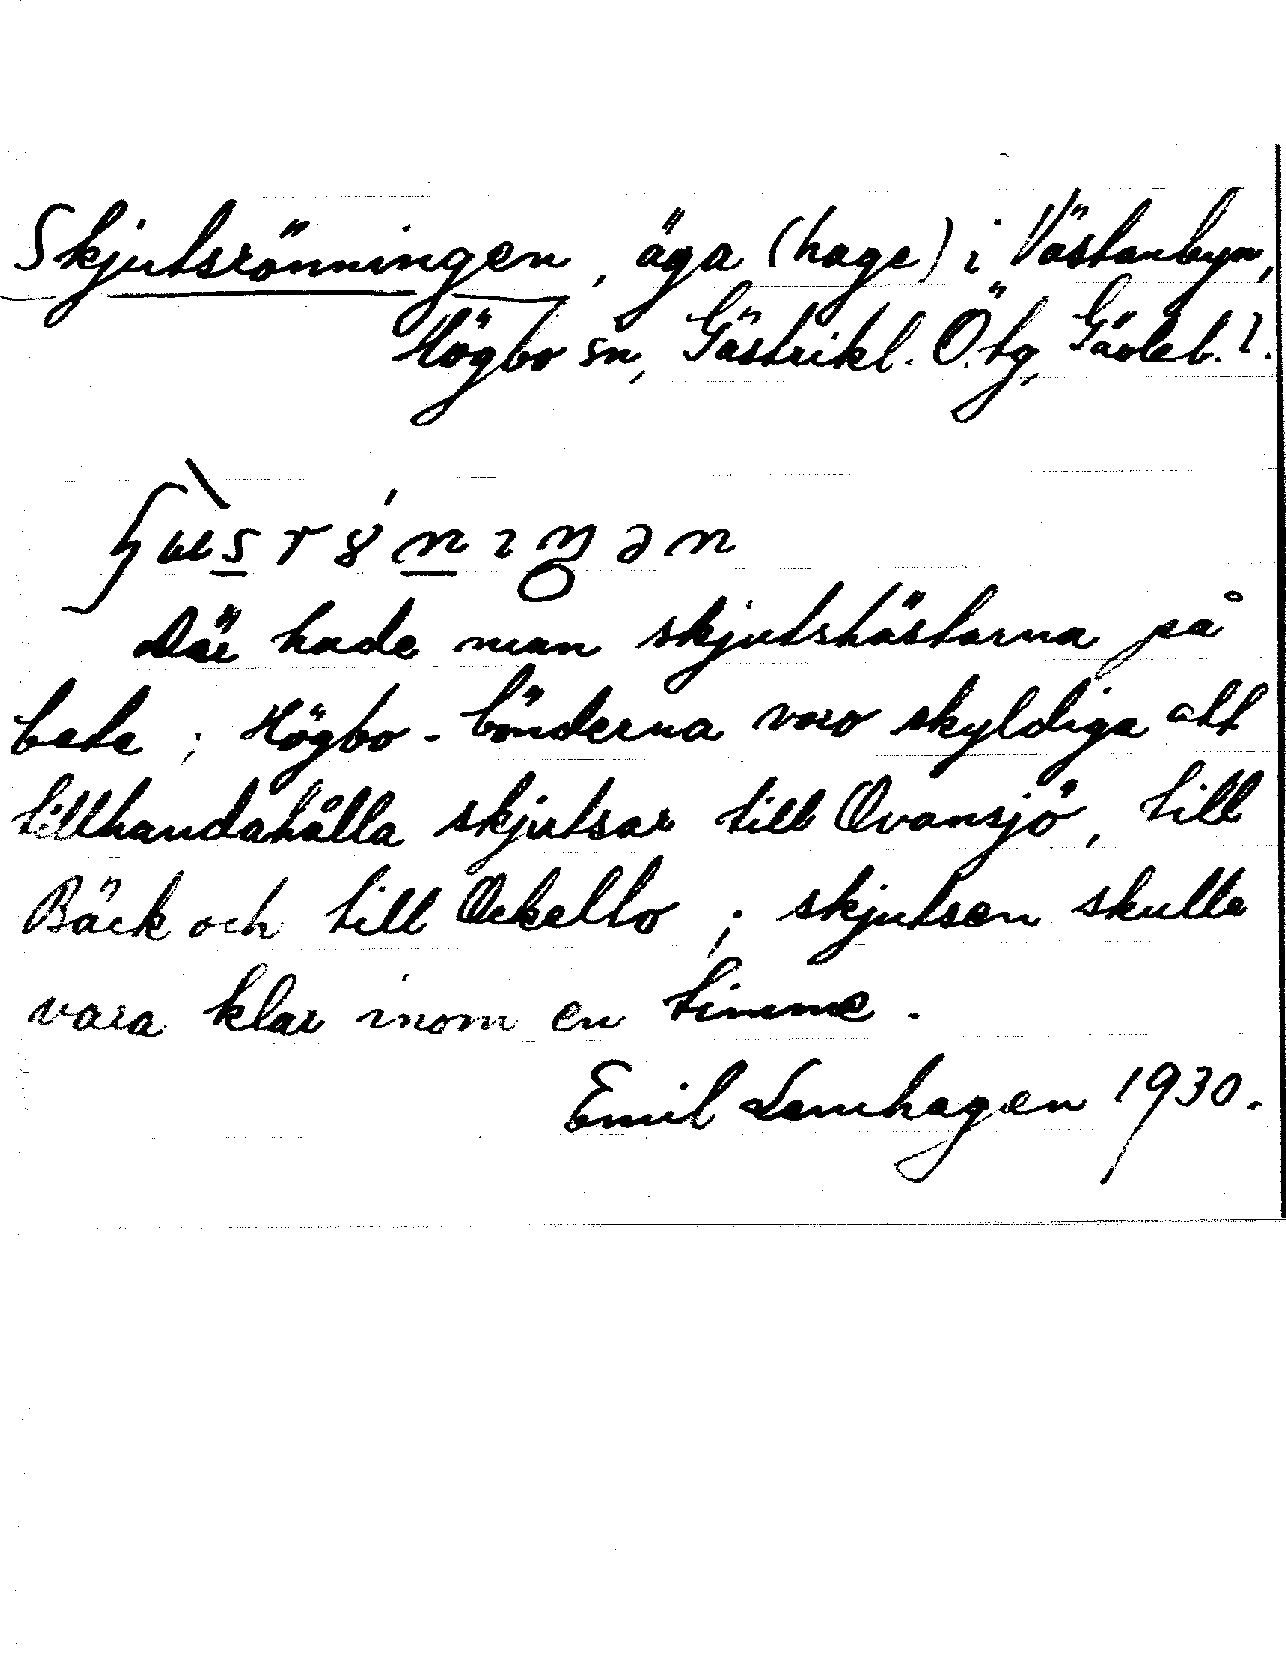 Skjutsrönningen, äga (hage) i Västanbyn,
Högbo sn, Gästrikl. Ö. tg, Gävleb. l.
Där hade man skjutshästarna på
bete; Högbo-bönderna voro skyldiga att
tillhandahålla skjutsar till Ovansjö, till
Bäck och till Ockelbo; skjutsen skulle
vara klar inom en timme.
Emil Lamhagen 1930.